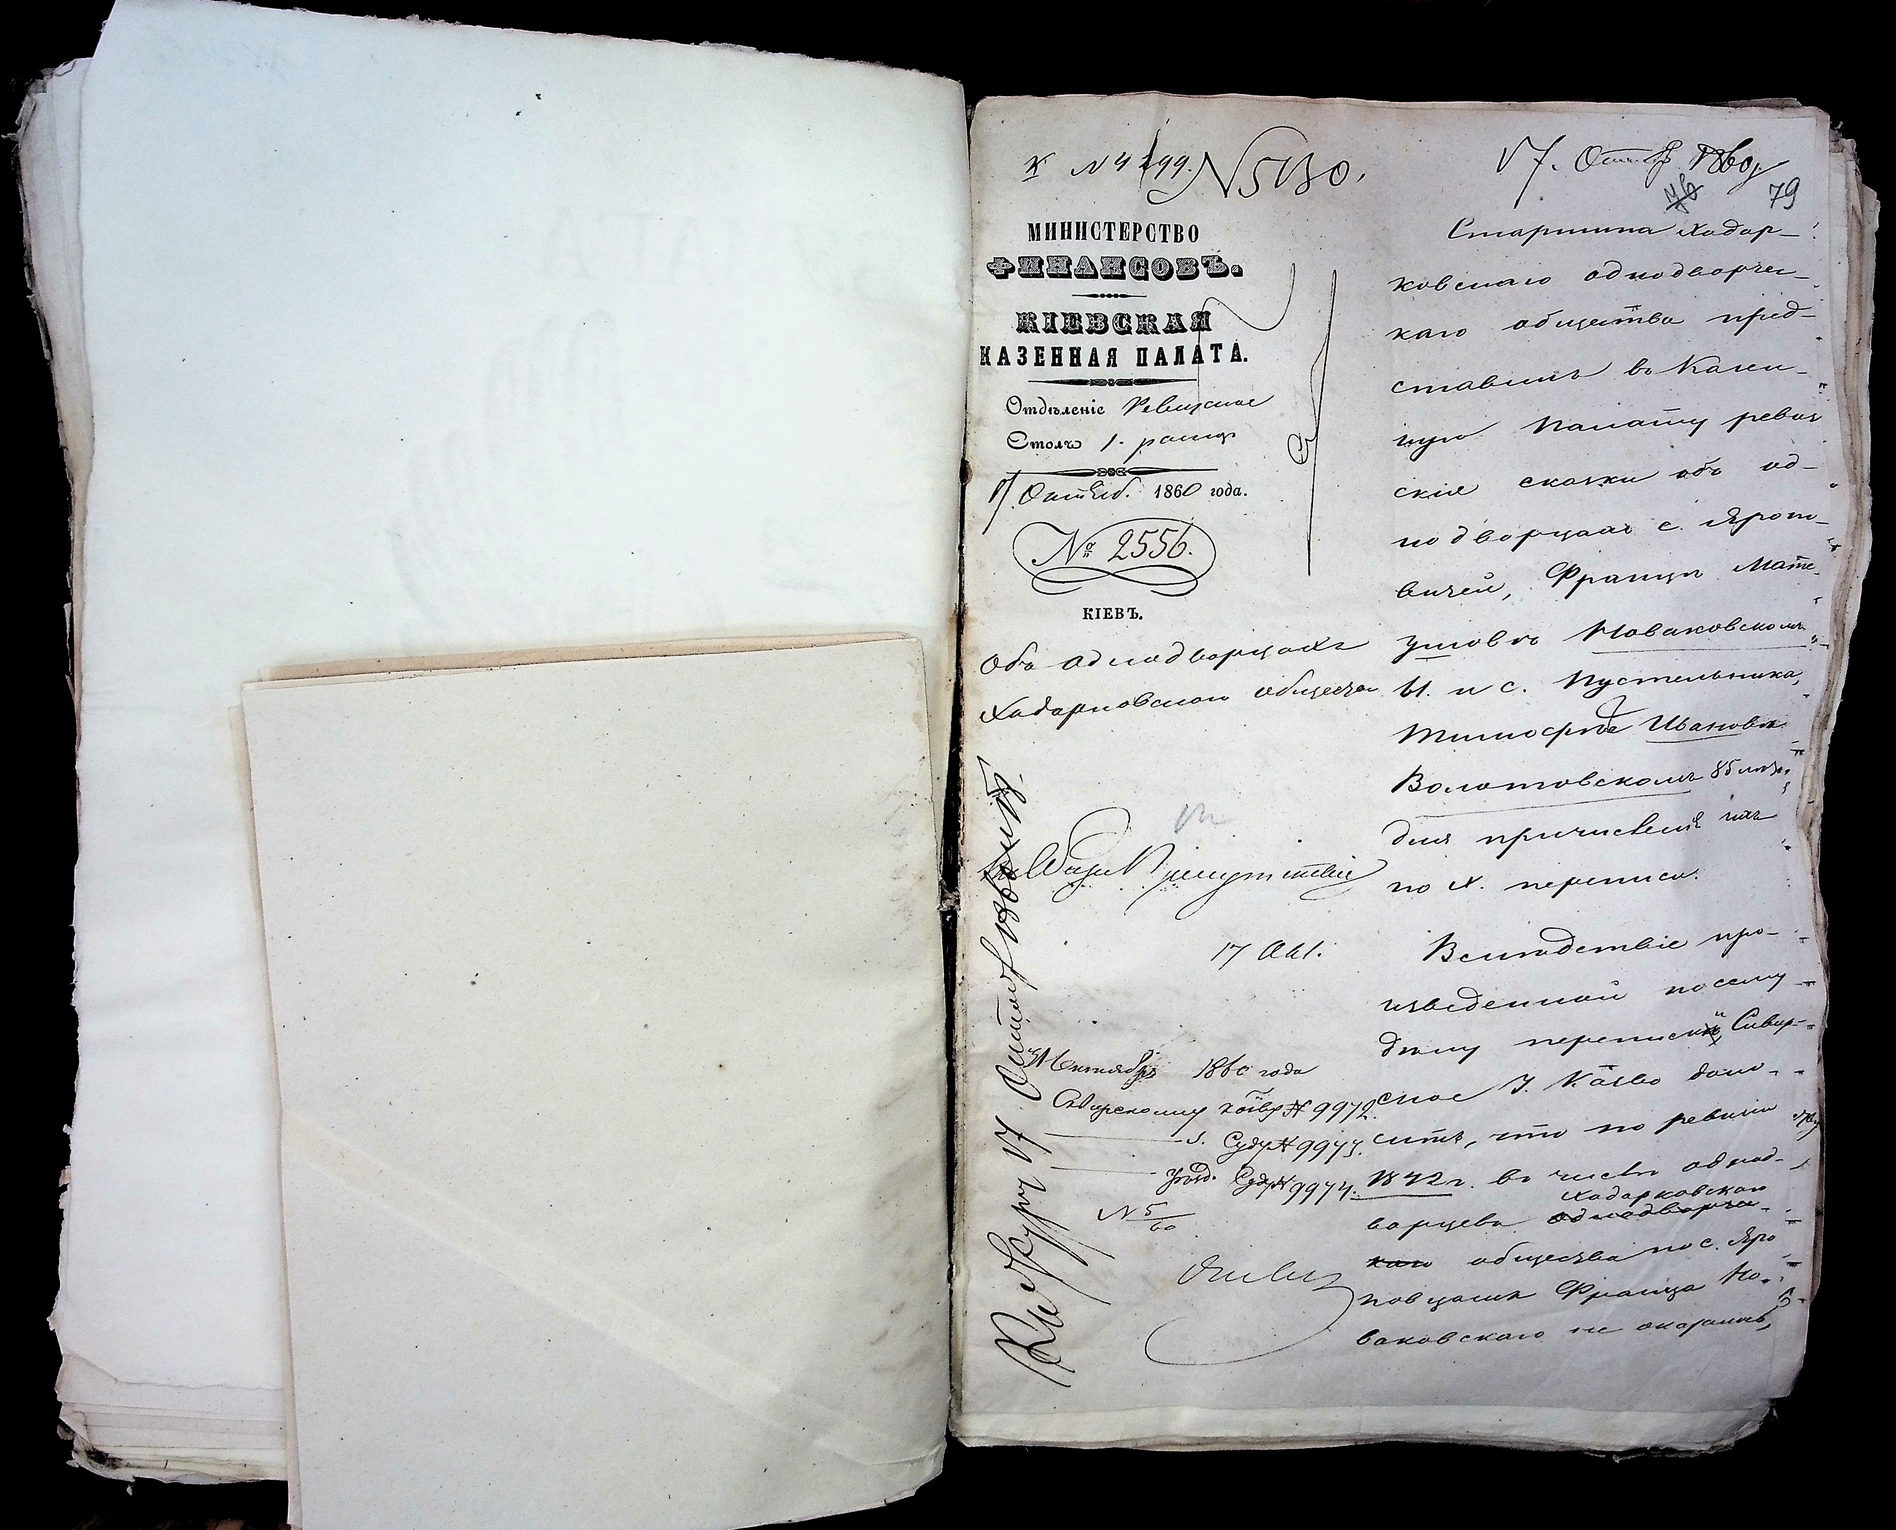 № 5130.
17. Октяб. 1860 г.
79
МИНИСТЕРСТВО
ФИНАНСОВЪ.
КІЕВСКАЯ
КАЗЕННАЯ ПАЛАТА.
Отдѣленіе Ревизское
Столъ 1.
17 Октяб. 1860 года.
№ 2556.
КІЕВЪ.
Объ однодворцахъ
Ходорковскаго общества
17 Окт.
Октября 1860 года
Сквирскому № 9972.
Суду № 9973.
Суду № 9974.
№ 5/60
Къ журу 17 Октября
Старшина Ходор-
ковскаго однодворчес-
каго общества пред-
ставилъ въ Казен-
ную Палату ревиз-
скія сказки объ од-
нодворцахъ с. Яропо-
вичей, Францъ Мате-
ушовъ Новаковскомъ
и с. Пустельника,
Тимофѣе Ивановѣ
Волотовскомъ 85 лѣтъ,
для причисленія ихъ
по X. переписи.
Вслѣдствіе про-
изведенной по сему
дѣлу переписки Сквир-
ское У. Каз-во доно-
ситъ, что по ревизіи
1842 г. въ числѣ однод-
Ходорковскаго
ворцевъ однодворчес-
каго общества по с. Яро
повцамъ Франца Но-
ваковскаго не оказалось,